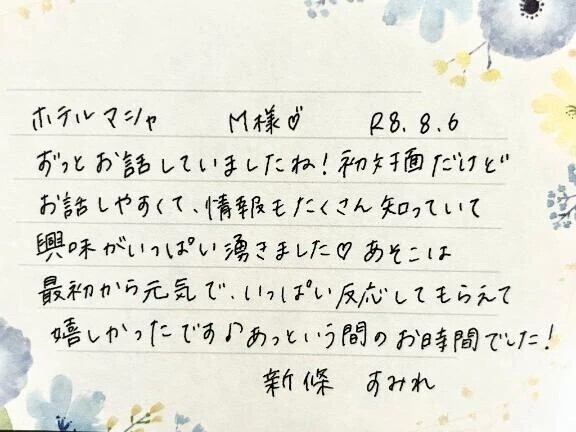 ホテルマシャ M様♡ R8.8.6
ずっとお話していましたね！初対面だけど
お話しやすくて、情報もたくさん知っていて
興味がいっぱい湧きました♡あそこは
最初から元気で、いっぱい反応してもらえて
嬉しかったです♪あっという間のお時間でした！
新條 すみれ